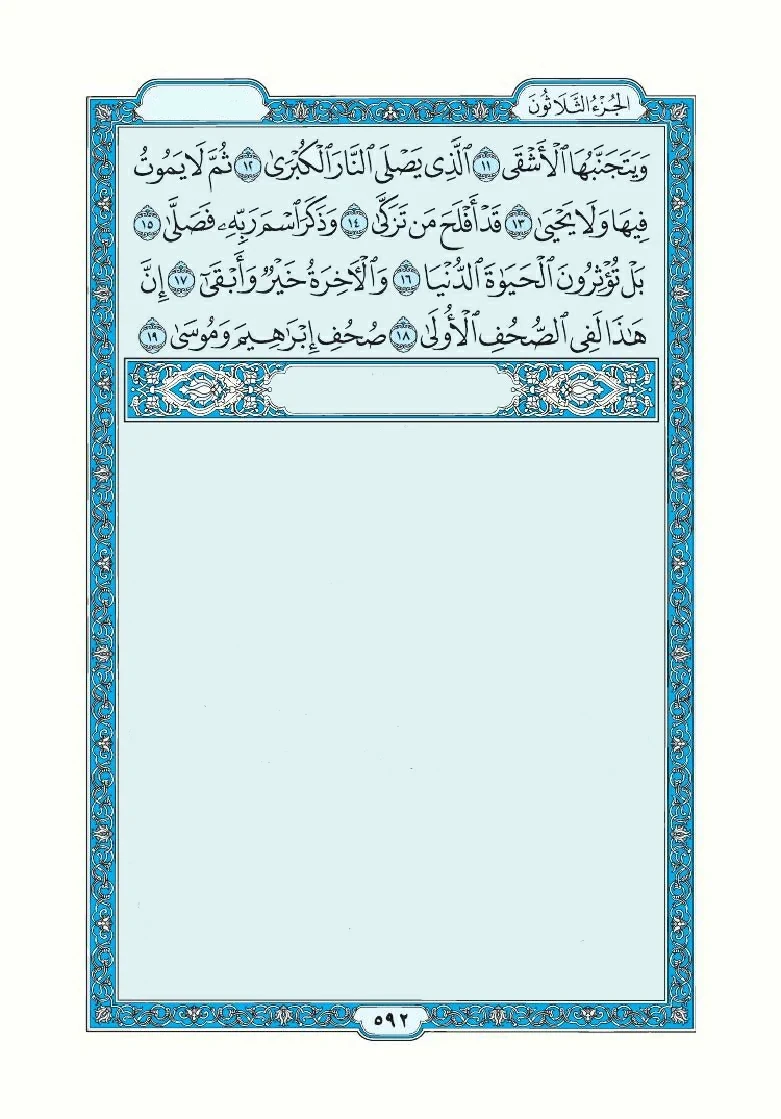 الجزء الثلاثون
وَيَتَجَنَّبُهَا ٱلْأَشْقَى ١١ ٱلَّذِى يَصْلَى ٱلنَّارَ ٱلْكُبْرَىٰ ١٢ ثُمَّ لَا يَمُوتُ
فِيهَا وَلَا يَحْيَىٰ ١٣ قَدْ أَفْلَحَ مَن تَزَكَّىٰ ١٤ وَذَكَرَ ٱسْمَ رَبِّهِۦ فَصَلَّىٰ ١٥
بَلْ تُؤْثِرُونَ ٱلْحَيَوٰةَ ٱلدُّنْيَا ١٦ وَٱلْءَاخِرَةُ خَيْرٌ وَأَبْقَىٰٓ ١٧ إِنَّ
هَٰذَا لَفِى ٱلصُّحُفِ ٱلْأُولَىٰ ١٨ صُحُفِ إِبْرَٰهِيمَ وَمُوسَىٰ ١٩
٥٩٢